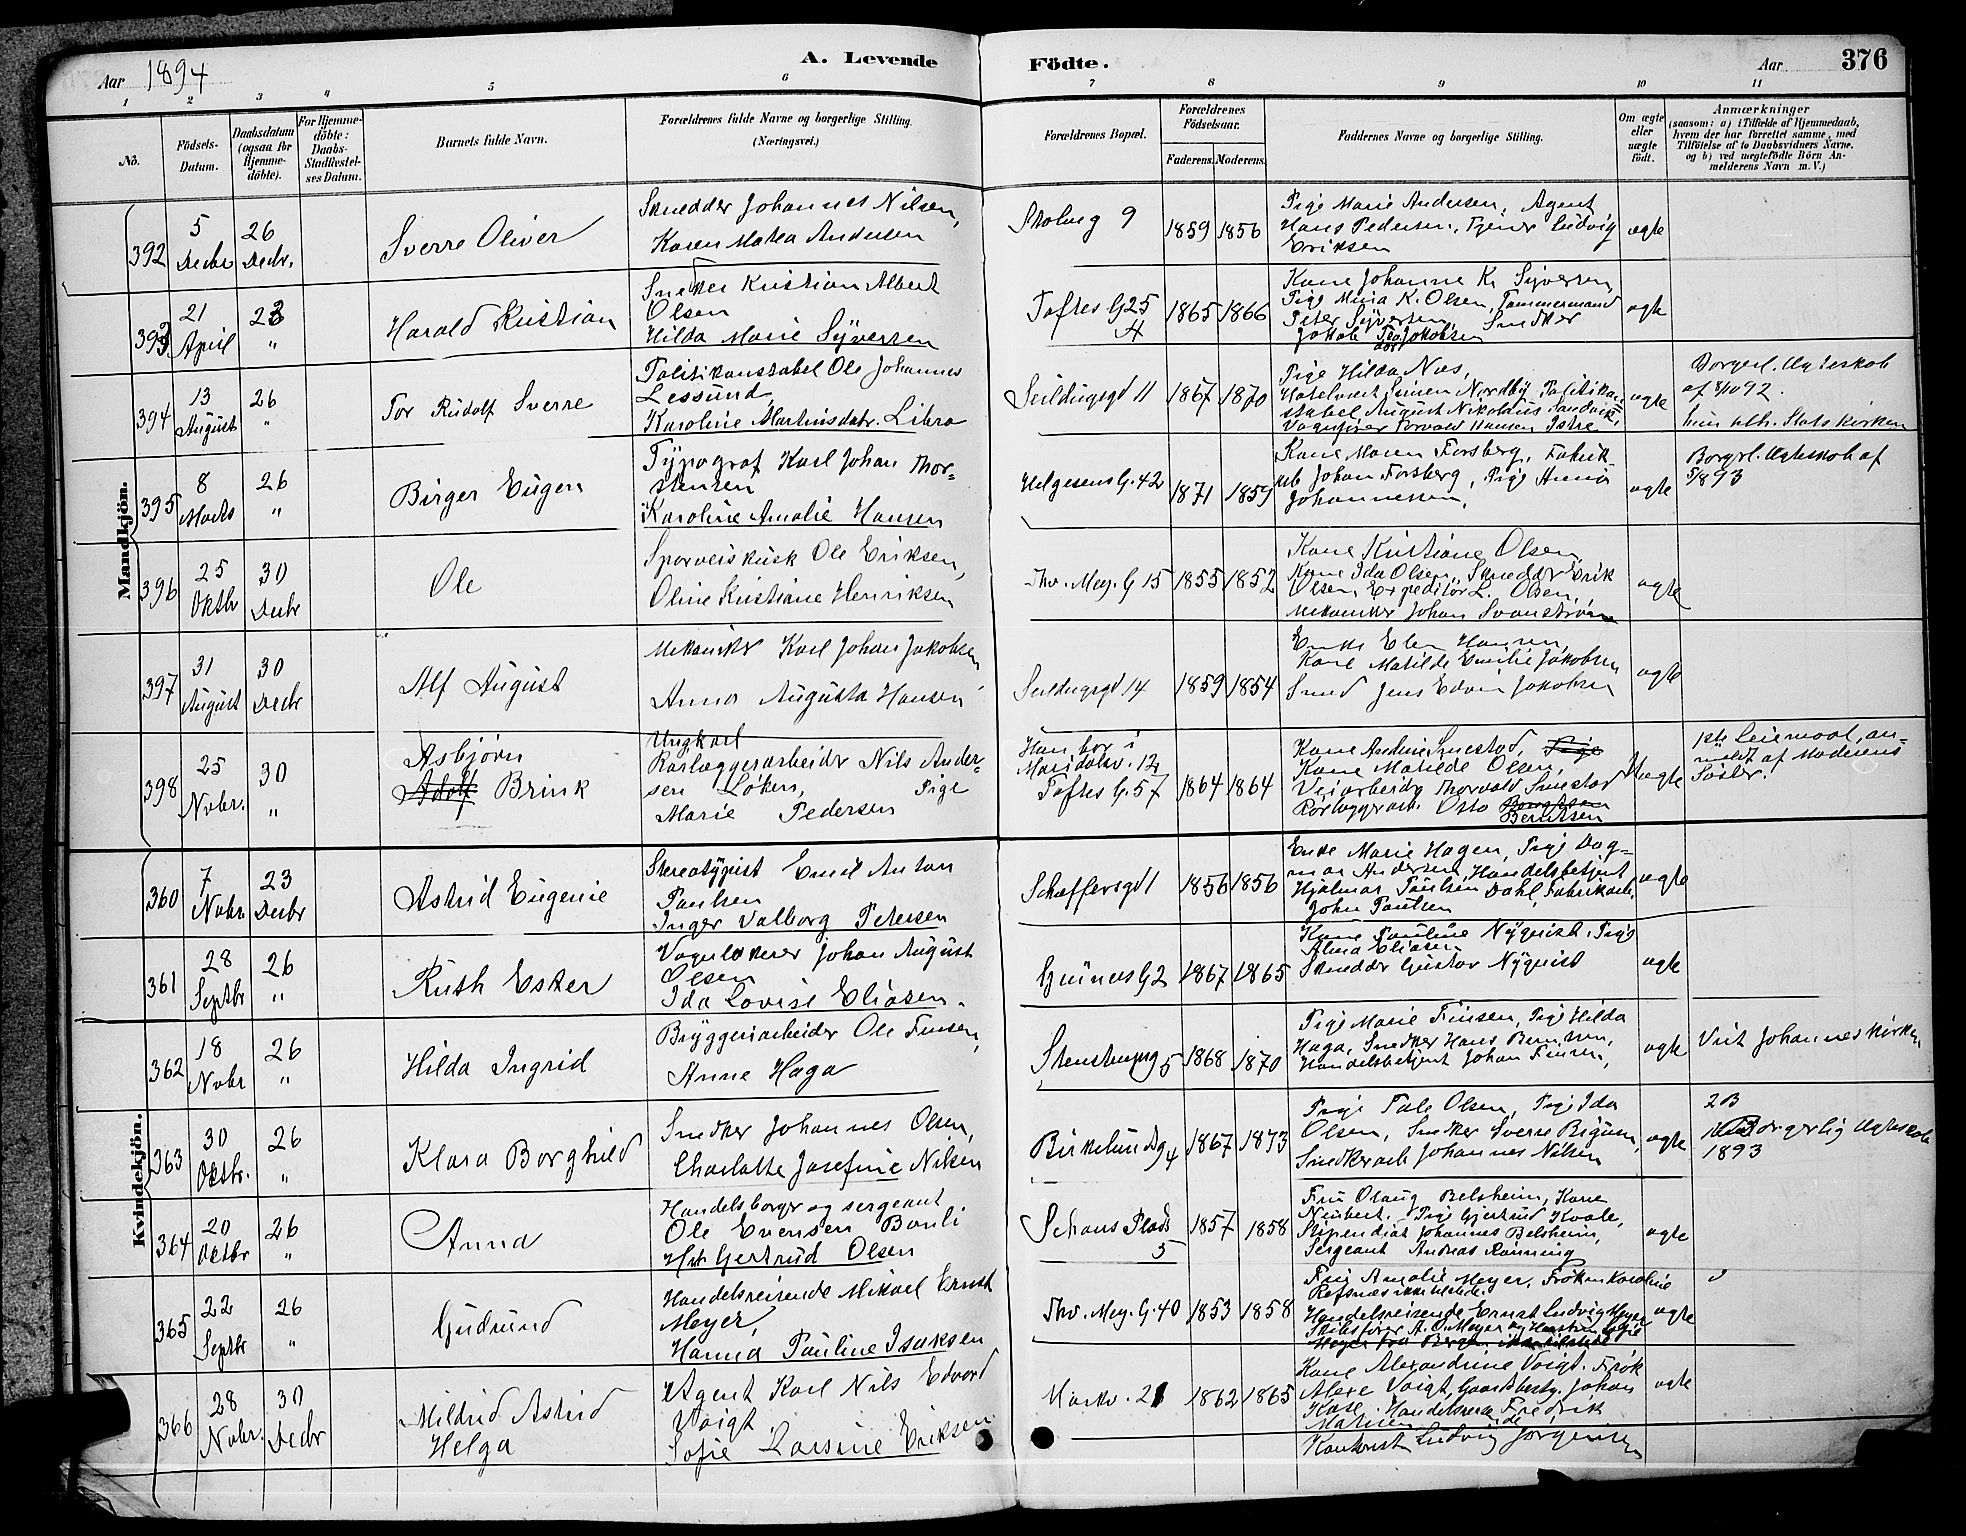 Aar 1894
A. Levende
Födte.
Aar
376
1 2 3 4 5 6 7 8 9 10 11
No.
Födsels-Datum.
Daabsdatum (ogsaa for Hjemme-döbte).
For Hjemme-döbte: Daabs-Stadfæstel-ses Datum.
Barnets fulde Navn.
Forældrenes fulde Navne og borgerlige Stilling.
(Næringsvei.)
Forældrenes Bopæl.
Forældrenes Födselsaar.
Faderens. Moderens.
Faddernes Navne og borgerlige Stilling.
Om ægte eller uægte födt.
Anmærkninger
(saasom: a) i Tilfælde af Hjemmedaab, hvem der har forrettet samme, med Tilföielse af to Daabsvidners Navne, og b) ved uægtefödte Börn An-melderens Navn m. V.)
Mandkjön.
392
5 Decbr
26 Decbr.
Sverre Oliver
Skrædder Johannes Nilsen,
Karen Matea Andersen
9
1859 1856
Pige Marie Andersen, Agent
Hans Pedersen, Tjener Ludvig
Eriksen
ægte
393
21 April
23 "
Harald Kristian
Snedker Kristian Albert
Olsen
Hilda Marie Syversen
Toftes G. 25
4
1865 1866
Kone Johanne K. Syversen,
Pige Mina K. Olsen, Tømmermand
Peter Syversen, Snedker
Jakob Jakobsen
ægte
394
13 August
26 "
Tor Rudolf Sverre
Politikonstabel Ole Johannes
Lessund,
Karoline Martinsdatr. Libra
Seildugsgd 11
1867 1870
Pige Hilda Næs,
Hotelvært Simen Nordby, Politikon-
stabel August Nikolaus Sandvik,
Vognfører Torvald Hansen
ægte
Borgerl. Ægteskab
af 8/10 92.
hun utb. Statskirken
395
8 Marts
26 "
Birger Eugen
Typograf Karl Johan Thor-
stensen
Karoline Amalie Hansen
Helgesens G. 42
1871 1859
Kone Maren Forsberg, Fabrik
arb Johan Forsberg, Pige Anna
Johannessen,
ægte
Borgerl. Ægteskab af
5/8 93
396
25 Oktbr
30 Decbr
Ole
Sporveiskusk Ole Eriksen,
Oline Kristiane Henriksen
Thv. Mey. G 15
1855 1852
Kone Kristiane Olsen,
Kone Ida Olsen, Skrædder Erik
Olsen, Expeditør L. Olsen,
Mekaniker Johan Svanstrøm
ægte
397
31 August
30 Decbr
Alf August
Mekaniker Karl Johan Jakobsen
Anna Augusta Hansen
Seildugsgd 14
1859 1854
Enke Elen Hansen,
Kone Matilde Emilie Jakobsen
Smed Jens Edvin Jakobsen
ægte
398
25 Novbr.
30 "
Asbjørn
Adolf Brink
Ungkarl
Rørlæggerarbeider Nils Ander-
sen Løken, Pige
Marie Pedersen
Han bor i
Maridalsv. 12
Toftes G. 57
1864 1864
Kone Andrine Smestad, Pige
Kone Matilde Olsen,
Veiarbeider Thorvald Smestad
Rørlæggerarb. Otto
Berntsen
Uægte
1ste Leiermaal, an-
meldt af Moderens
Søster.
Kvindekjön.
360
7 Novbr
23 Decbr
Astrid Eugenie
Stereotypist Emil Anton
Paulsen
Inger Valborg Petersen
Schaffersgd 1
1856 1856
Enke Marie Hagen, Pige Dag-
mar Andersen, Handelsbetjent
Hjalmar Paulsen Dahl, Fabrikarb.
John Paulsen
ægte
361
28 Septbr
26 "
Ruth Ester
Vognlakerer Johan August
Olsen
Ida Lovise Eliasen.
G 2
1867 1865
Kone Pauline Nyqvist, Pige
Alma Eliasen
Skrædder Gustav Nyqvist
ægte
362
18 Novbr
26 "
Hilda Ingrid
Bryggeriarbeider Ole Finsen,
Anne Haga
5
1868 1870
Pige Marie Finsen, Pige Hilda
Haga, Snedker Hans Berntsen,
Handelsbetjent Johan Finsen,
ægte
Viet Johanneskirken
363
30 Oktbr.
26 "
Klara Borghild
Snedker Johannes Olsen,
Charlotte Josefine Nilsen
Birkelundsg 4
1867 1873
Pige Tale Olsen, Pige Ida
Olsen, Snedker Sverre
Snedkerarb Johannes Nilsen
ægte
Borgerlig Ægteskab
1893
364
20 Oktbr
26 "
Anna
Handelsborger og sergeant
Ole Evensen Bonli
Gertrud Olsen
Schous Plads
5
1857 1858
Fru Olaug Belsheim, Kone
Neubert, Pige Gjertrud Kvale,
Stipendiat Johannes Belsheim,
Sergeant Andreas Rønning
ægte
365
22 Septbr
26 "
Gudrund
Handelsreisende Mikael Ernst
Meyer,
Hanna Pauline Isaksen
Thv. Mey. G. 40
1853 1858
Amalie Meyer, Frøken Karoline
Refsnæs
Handelsreisende Ernst Ludvig Meyer
Skibsfører A. O. Meyer
ægte
366
28 Novbr.
30 Decbr
Mildrid Astrid
Helga
Agent Karl Nils Edvard
Voigt
Sofie Larsine Eriksen
Markv. 21
1862 1865
Kone Alexandrine Voigt, Frøk
Voigt, Gaardbestyr. Johan
Fredrik
Kontorist Ludvig Jørgensen
ægte